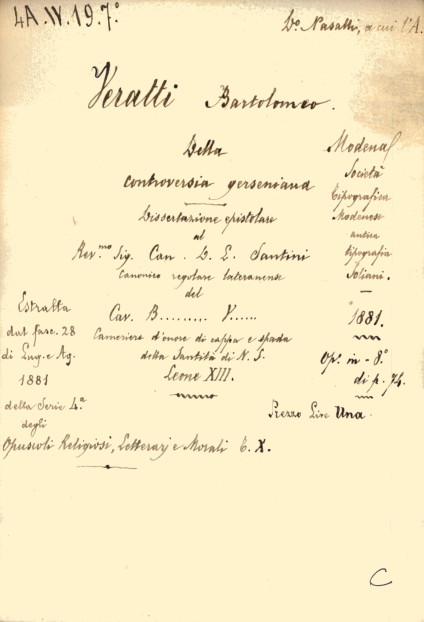 4A.W.19.7.°
D.° Nasalli, a cui l'A.
Veratti Bartolomeo.
Della
controversia gerseniana
Dissertazione epistolare
al
Rev.mo Sig. Can. D. L. Santini
Canonico regolare lateranense
del
Cav. B......... V......
Cameriere d'onore di cappa e spada
della Santità di N. S.
Leone XIII.
Modena
Società
tipografica
Modenese
antica
tipografia
Soliani.
1881.
Op. in-8°
di p. 74.
Prezzo Lire Una.
Estratta
dal fasc. 28
di Lug. e Ag.
1881
della Serie 4.a
degli
Opuscoli Religiosi, Letterarj e Morali T. X.
C